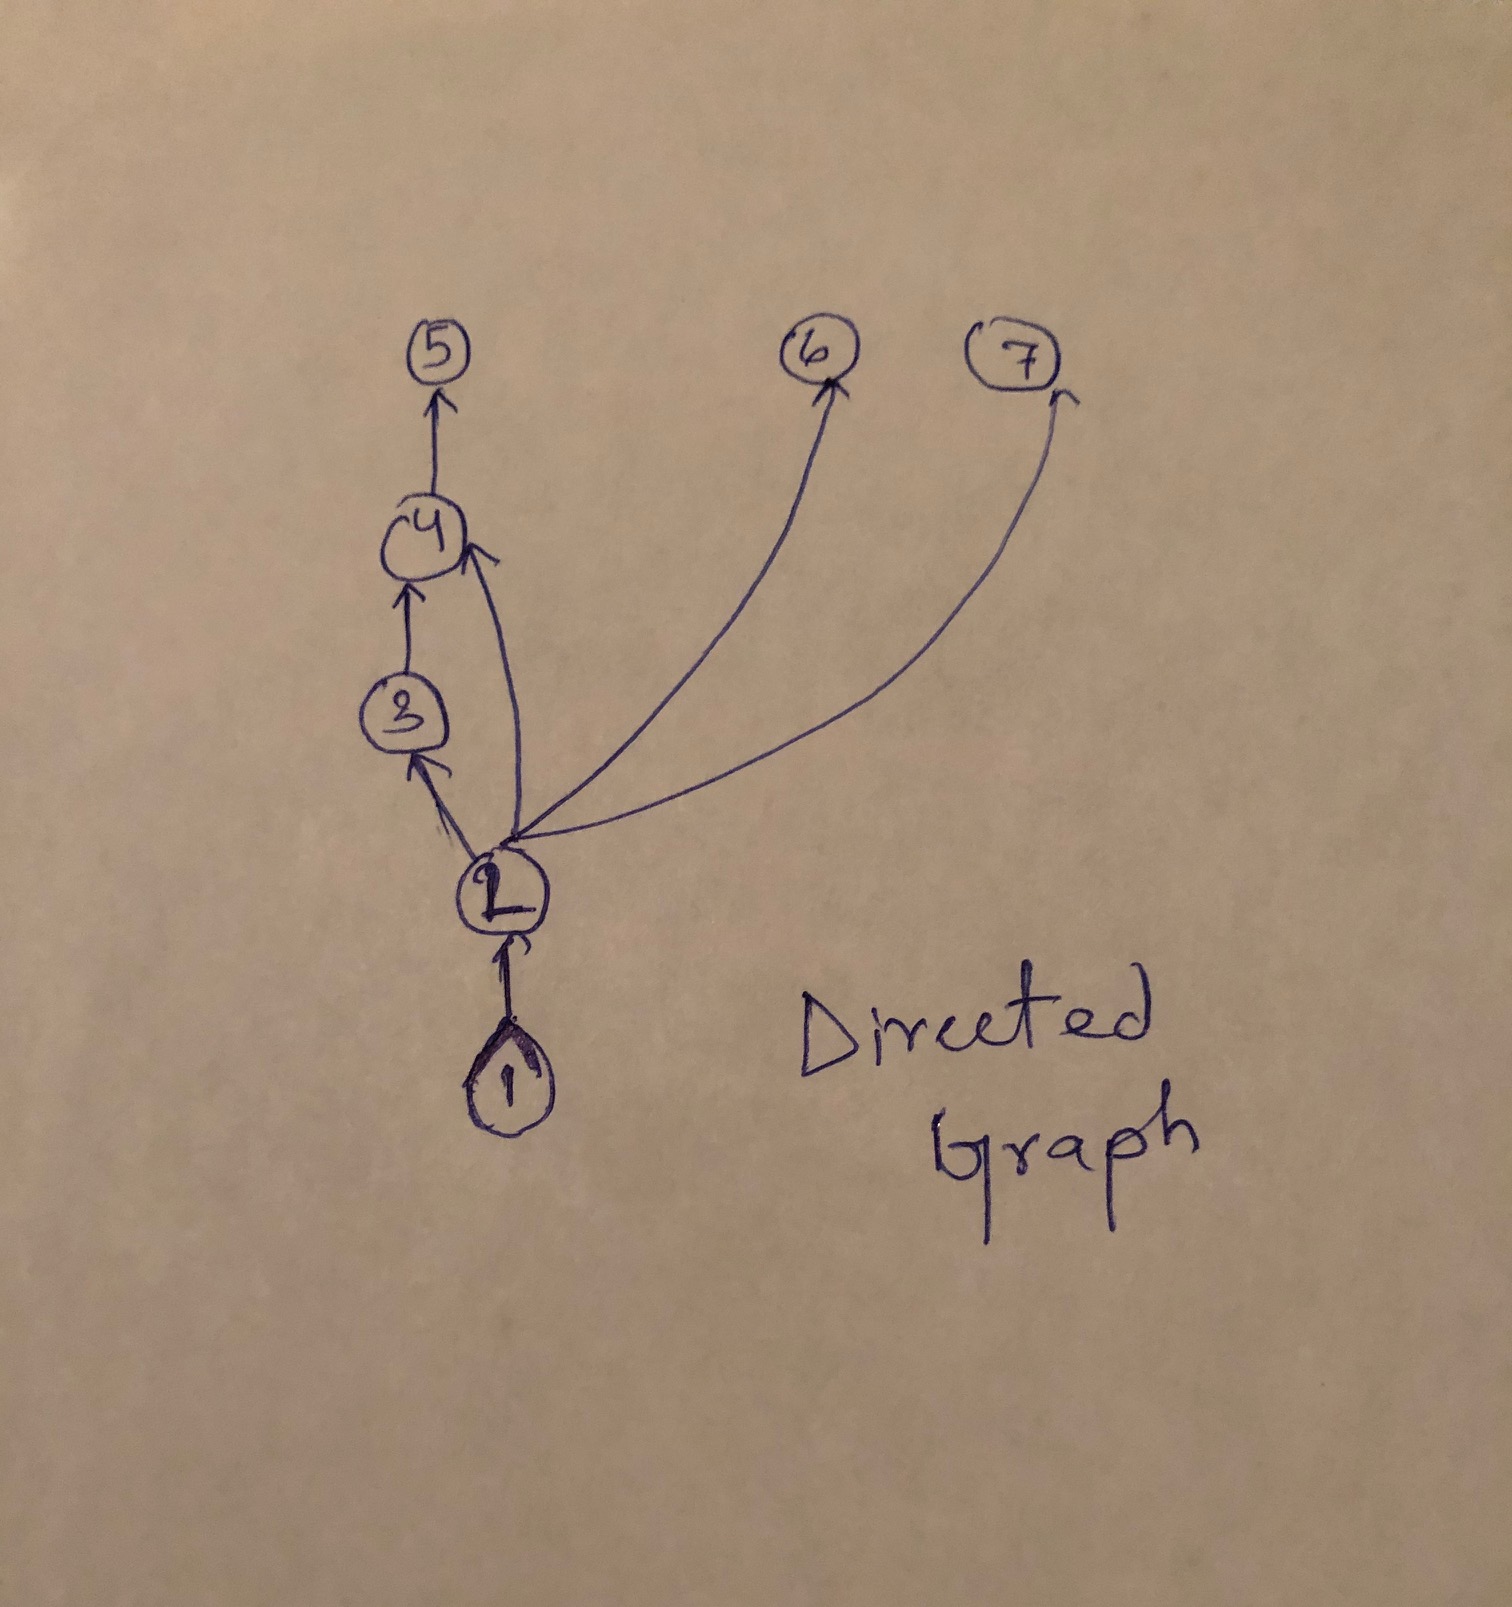 5
6
7
4
3
2
1
Directed
Graph